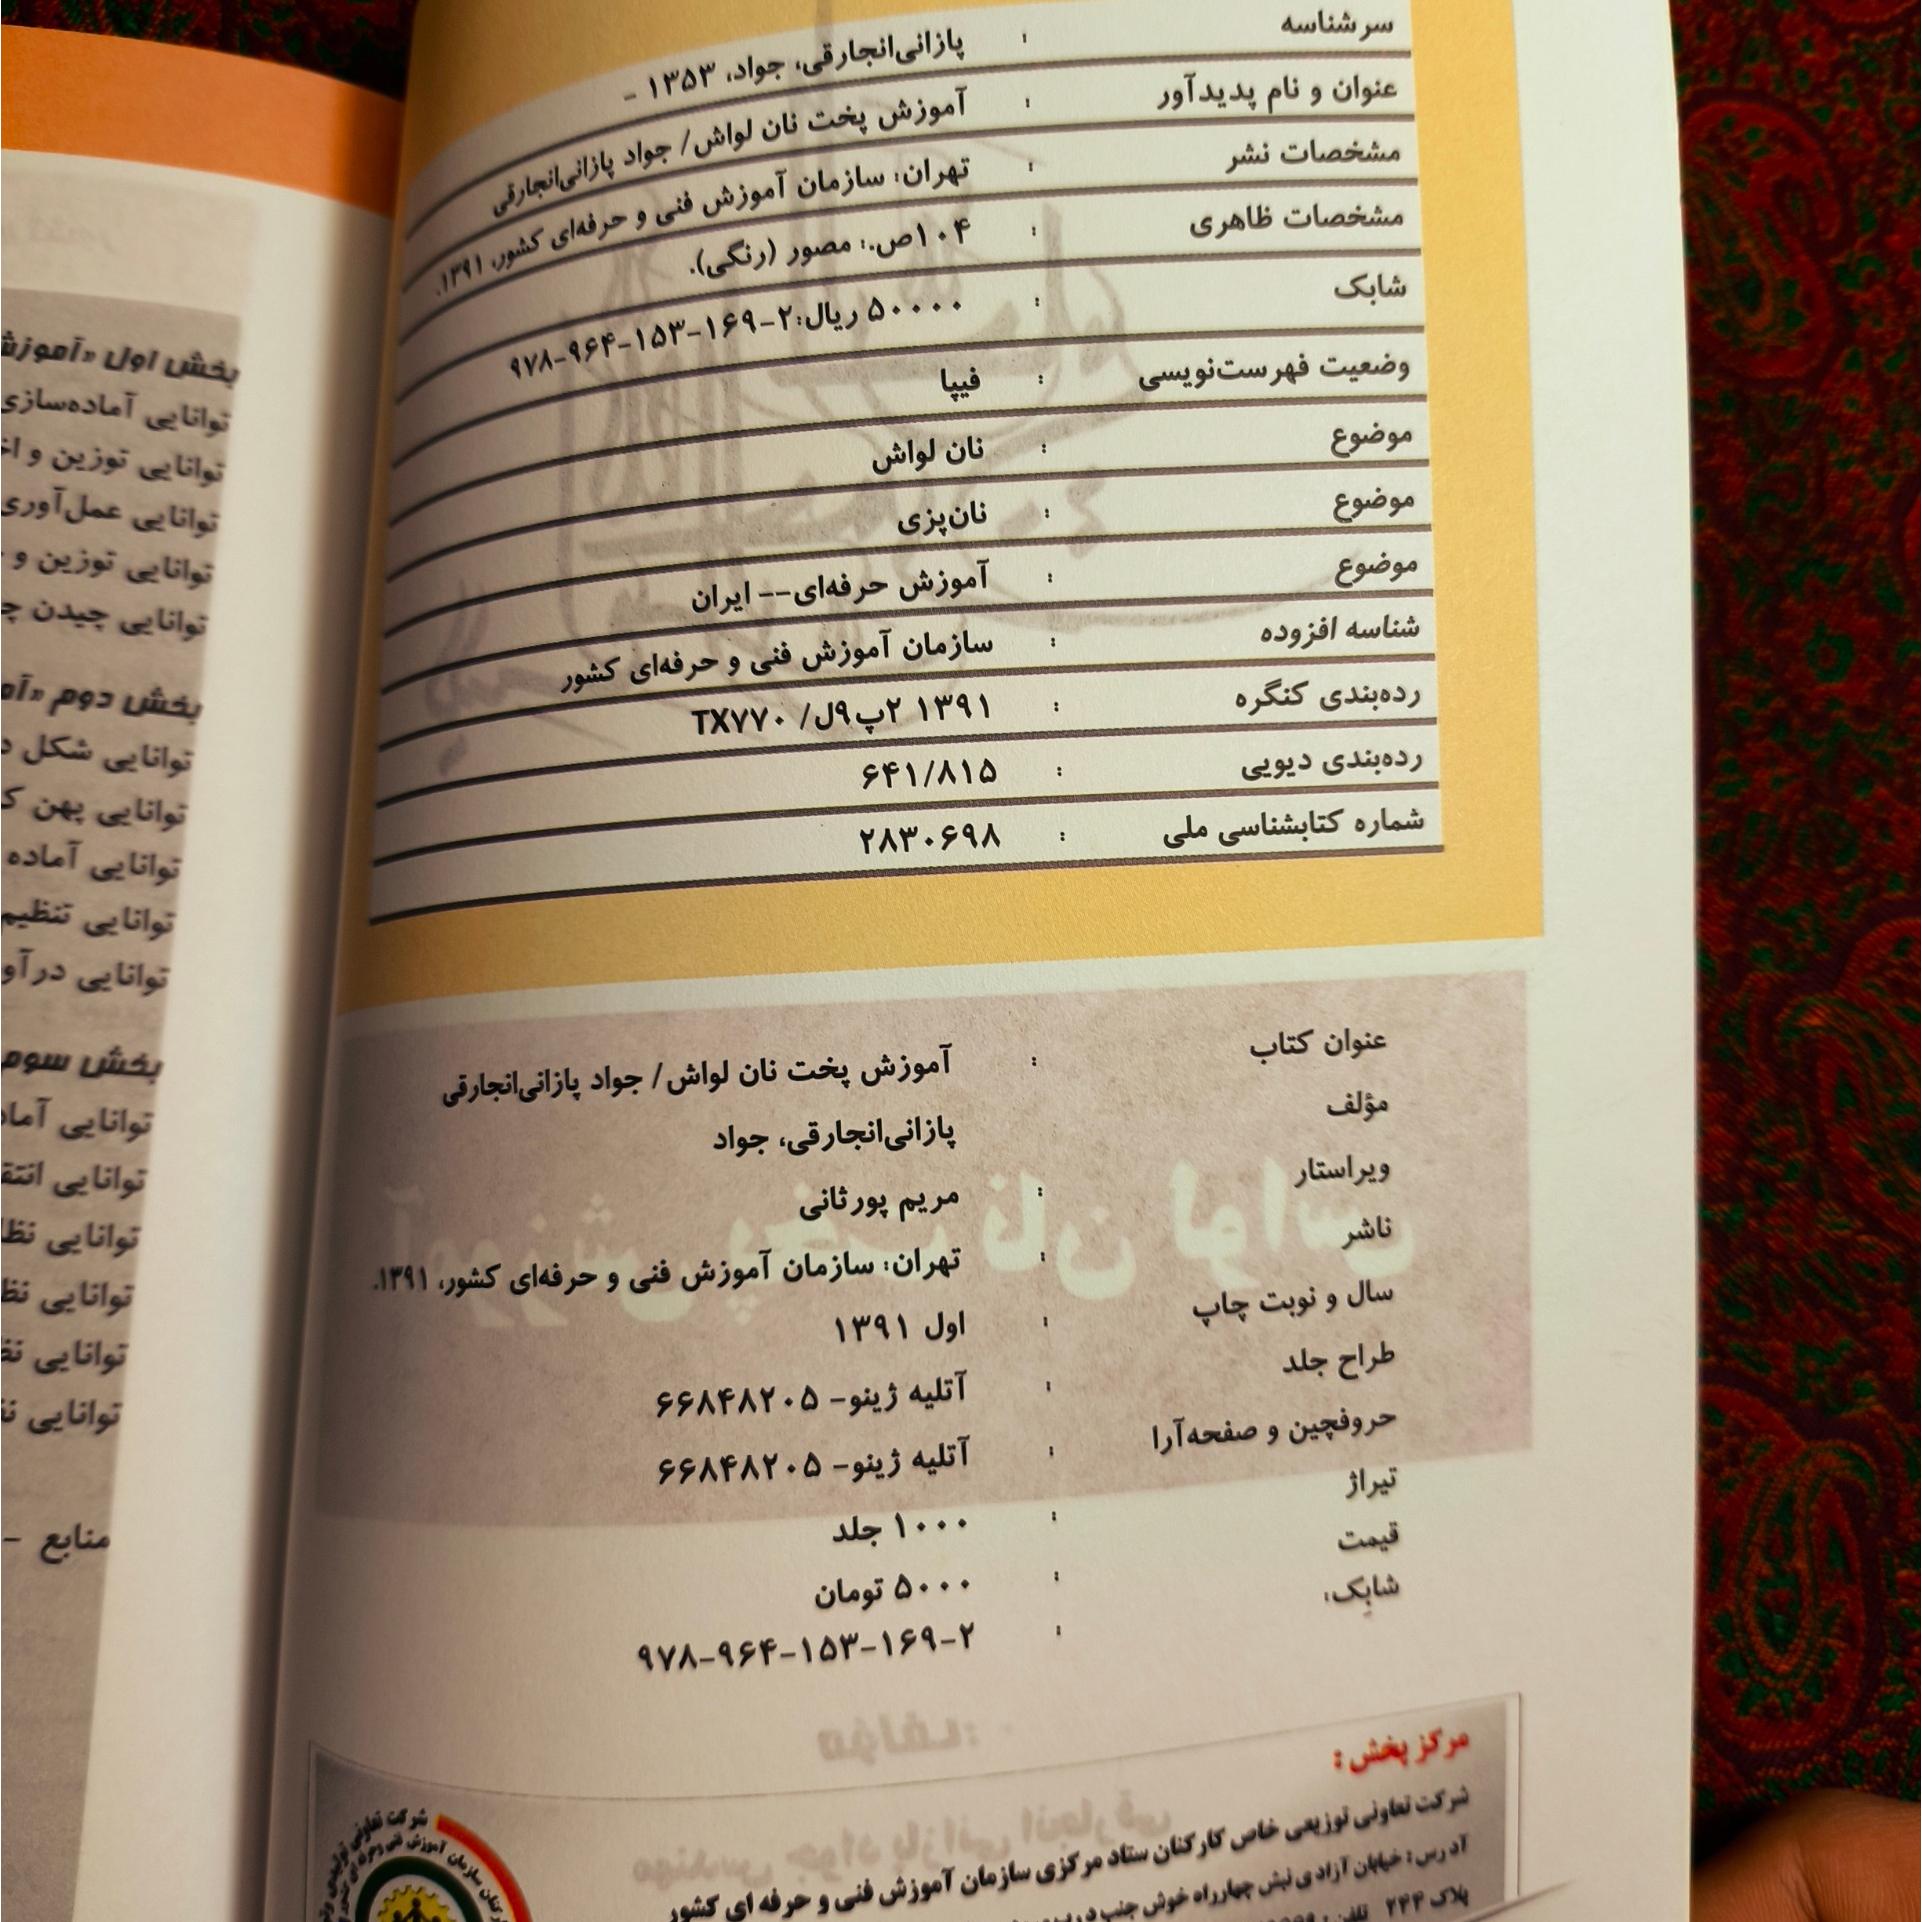 سرشناسه : پازانی‌انجارقی، جواد، ۱۳۵۳ -
عنوان و نام پدیدآور : آموزش پخت نان لواش/ جواد پازانی‌انجارقی
مشخصات نشر : تهران: سازمان آموزش فنی و حرفه‌ای کشور، ۱۳۹۱.
مشخصات ظاهری : ۱۰۴ص.: مصور (رنگی).
شابک : ۵۰۰۰۰ ریال:۲-۱۶۹-۱۵۳-۹۶۴-۹۷۸
وضعیت فهرست‌نویسی : فیپا
موضوع : نان لواش
موضوع : نان‌پزی
موضوع : آموزش حرفه‌ای-- ایران
شناسه افزوده : سازمان آموزش فنی و حرفه‌ای کشور
رده‌بندی کنگره : ۱۳۹۱ ۲پ۹ل/ TX۷۷۰
رده‌بندی دیویی : ۶۴۱/۸۱۵
شماره کتابشناسی ملی : ۲۸۳۰۶۹۸
عنوان کتاب : آموزش پخت نان لواش/ جواد پازانی‌انجارقی
مؤلف پازانی‌انجارقی، جواد
ویراستار : مریم پورثانی
ناشر : تهران: سازمان آموزش فنی و حرفه‌ای کشور، ۱۳۹۱.
سال و نوبت چاپ : اول ۱۳۹۱
طراح جلد : آتلیه ژینو- ۶۶۸۴۸۲۰۵
حروفچین و صفحه‌آرا : آتلیه ژینو- ۶۶۸۴۸۲۰۵
تیراژ : ۱۰۰۰ جلد
قیمت : ۵۰۰۰ تومان
شابک: : ۹۷۸-۹۶۴-۱۵۳-۱۶۹-۲
مرکز پخش :
شرکت تعاونی توزیعی خاص کارکنان ستاد مرکزی سازمان آموزش فنی و حرفه ای کشور
آدرس: خیابان آزادی نبش چهارراه خوش جنب
پلاک ۲۴۴ تلفن:
بخش اول «آموزش
توانایی آماده‌سازی
توانایی توزین و
توانایی عمل‌آوری
توانایی توزین و
توانایی چیدن
بخش دوم
توانایی شکل
توانایی پهن
توانایی آماده
توانایی تنظیم
توانایی
بخش سوم
توانایی
توانایی
توانایی
توانایی
توانایی
توانایی
منابع -